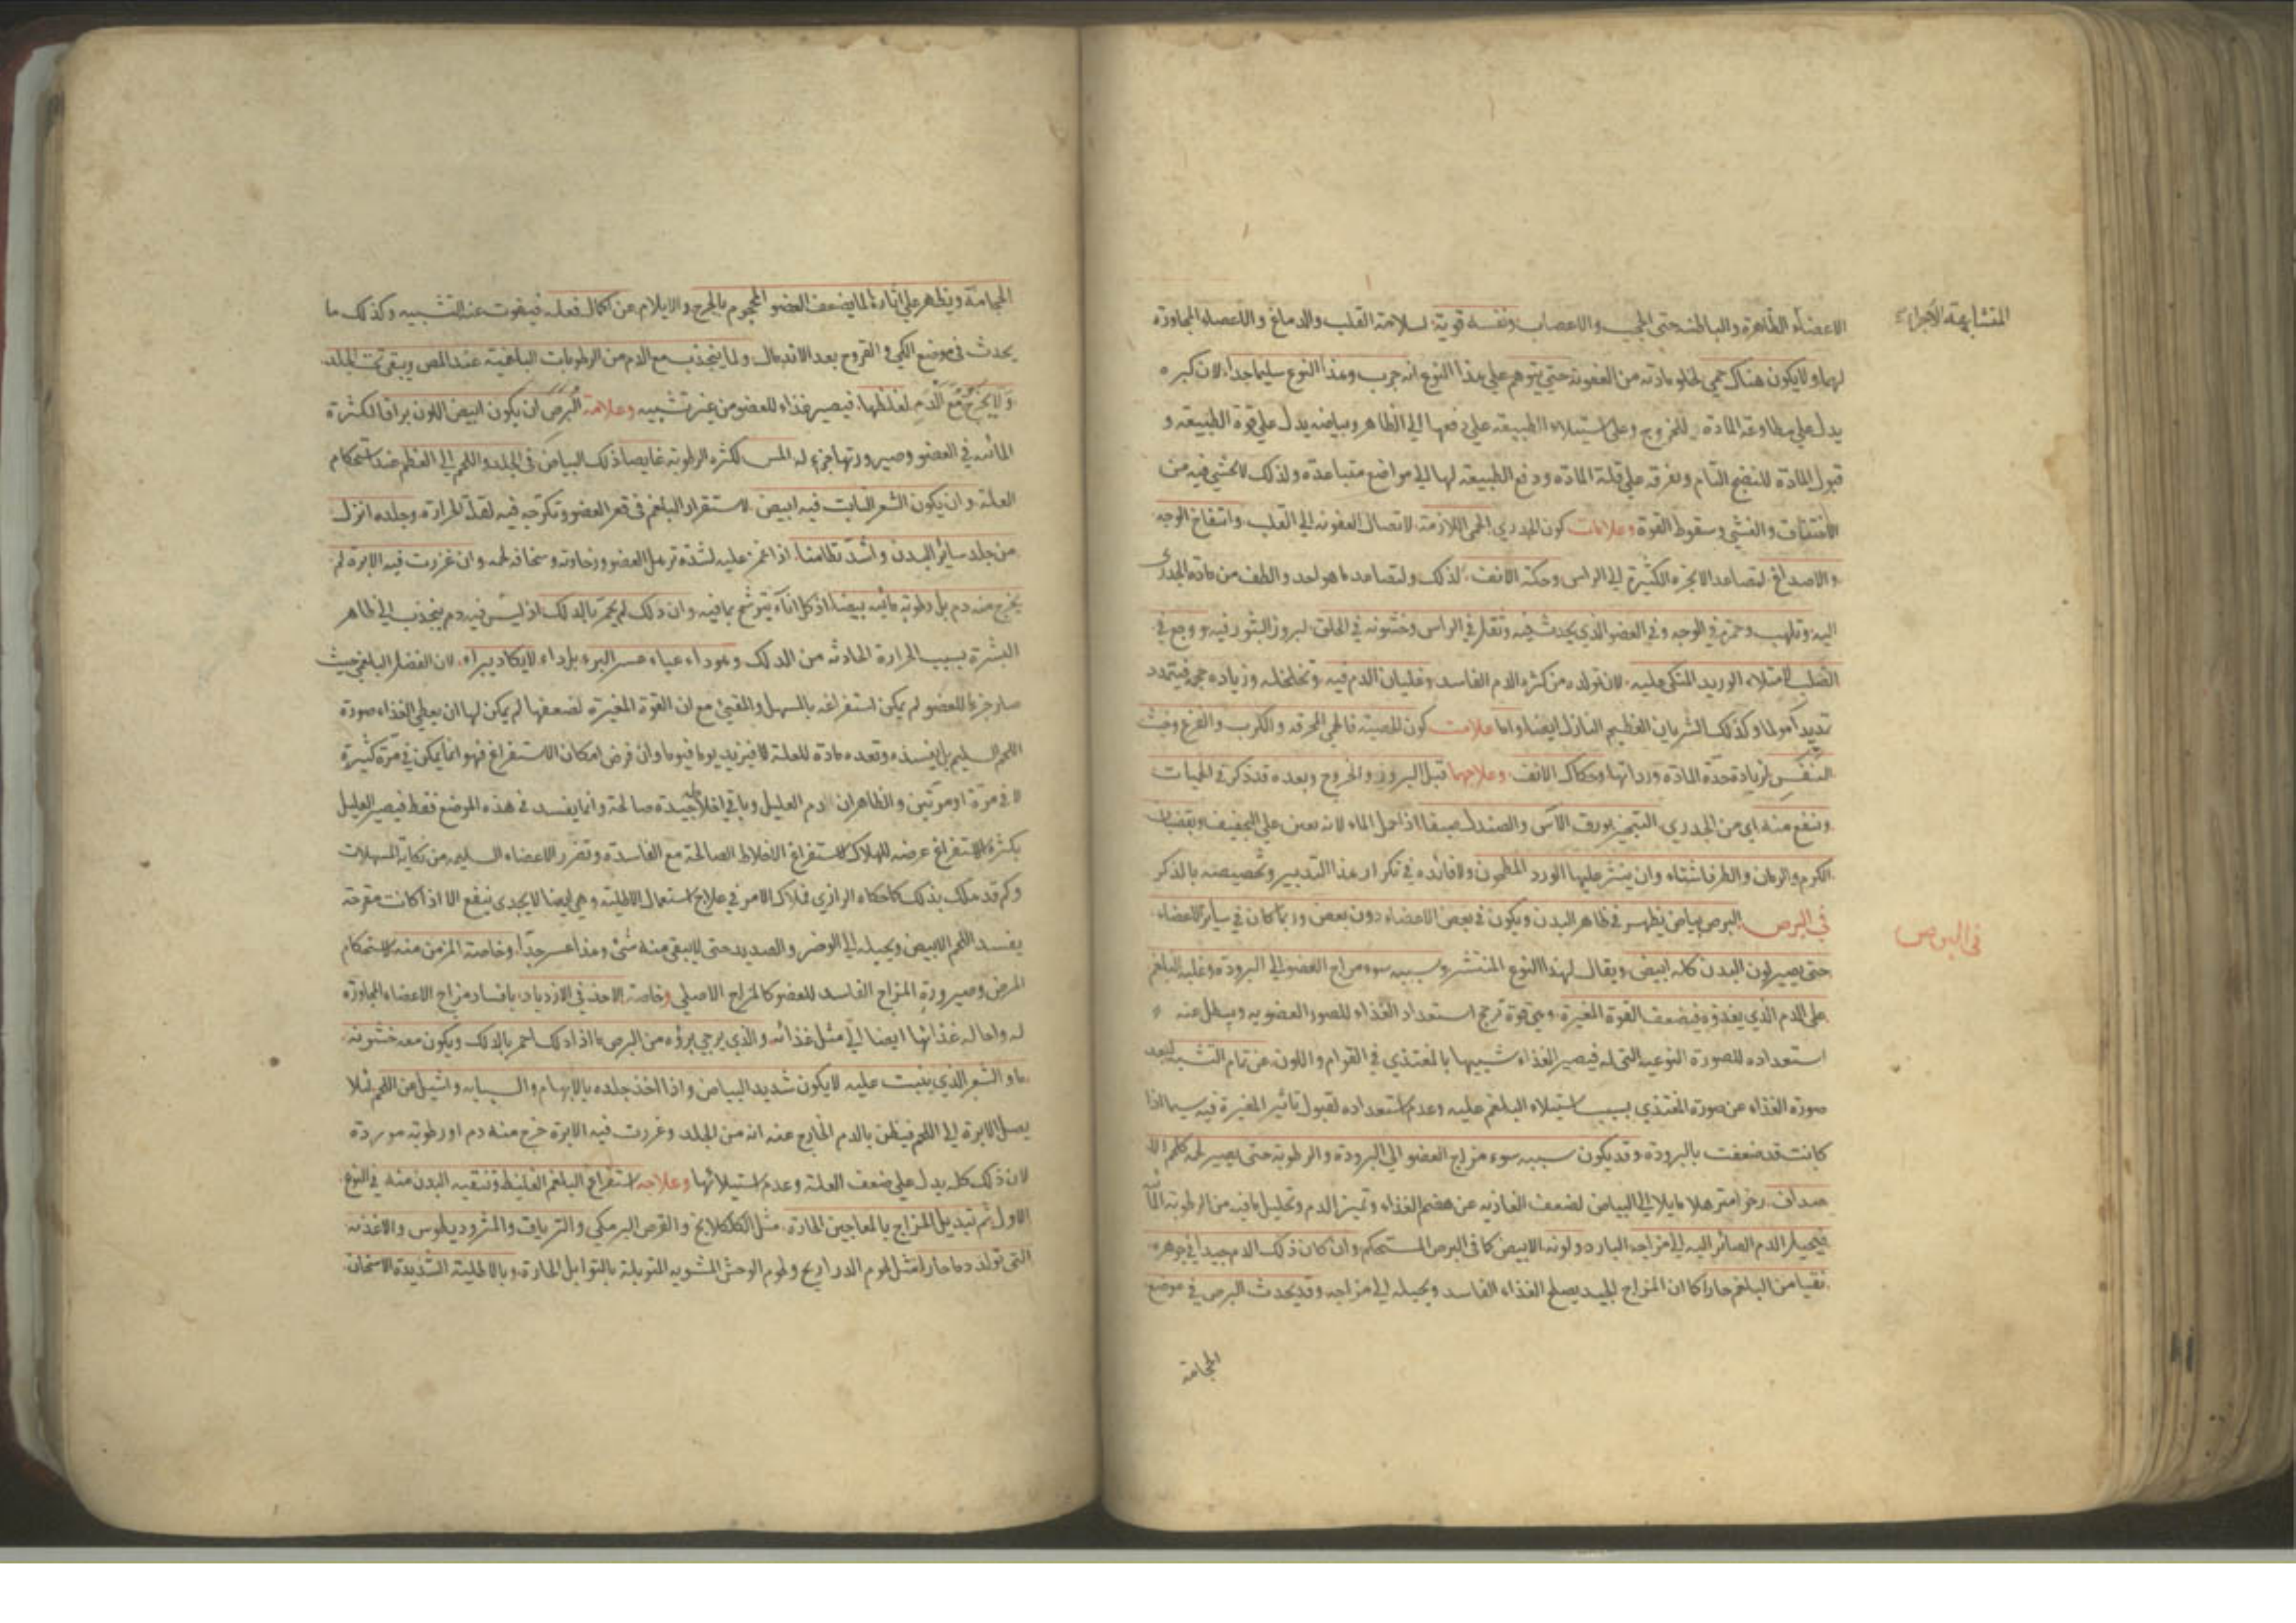 المتشابهة الاجزاء
الاعضاء الظاهرة والباطنة حتى الحجب والاعصاب ونفسه قوية لسلامة القلب والدماغ والاعضاء المجاورة
لهما ولا يكون هناك حمى لخلو مادته من العفونة حتى يتوهم على هذا النوع انه جرب وهذا النوع سليما جدا لان كبره
يدل على مطاوعة المادة للخروج وعلى استيلاء الطبيعة على دفعها الى الظاهر وبياضه يدل على قوة الطبيعة و
قبول المادة للنضج التام وتفرقه على قلة المادة ودفع الطبيعة لها الى مواضع متباعدة ولذلك لا يخشى فيه من
الاختناق والغشى وسقوط القوة وعلامات كون الجدري الحمى اللازمة لاتصال العفونة الى القلب وانتفاخ الوجه
والاصداغ لتصاعد الابخرة الكثيرة الى الراس وحكة الانف لذلك ولتصاعد ما هو احد والطف من مادة الجدري
اليه وتلهب وحمرة في الوجه وفي العضو الذي يحدث فيه وثقل في الراس وخشونة في الحلق لبروز البثور فيه ووجع في
الصلب لامتلاء الوريد المتكى عليه لان تولده من كثرة الدم الفاسد وغليان الدم فيه وتخلخله وزيادة حجمه فيتمدد
تمديدا مولما وكذلك الشريان العظيم النازل ايضا واما علامت كون الحصبة فالحمى المحرقة والكرب والفزع وخبث
النفس لزيادة حدة المادة ورداتها وحكاك الانف وعلاجهما قبل البروز والخروج وبعده قد ذكر في الحميات
وينفع منه اي من الجدري التبخير بورق الآس والصندل صيفا اذا حمل الماء لانه يعين على التجفيف وبقضبان
الكرم والرمان والطرفا شتاء وان ينثر عليها الورد المطحون ولا فائده في تكرار هذا التدبير وتخصيصه بالذكر
في البرص
في البرص البرص بياض يظهر في ظاهر البدن ويكون في بعض الاعضاء دون بعض وربما كان في سائر الاعضاء
حتى يصير لون البدن كله ابيض ويقال لهذا النوع المنتشر وسببه سوء مزاج العضو الى البرودة وغلبة البلغم
على الدم الذي يغذوه فيضعف القوة المغيرة وهي قوة ترجح استعداد الغذاء للصور العضوية ويبطل عنه
استعداده للصورة النوعية التي له فيصير الغذاء شبيها بالمغتذي في القوام واللون عن تمام التشبيه لبعد
صورة الغذاء عن صورة المغتذي بسبب استيلاء البلغم عليه وعدم استعداده لقبول تاثير المغيرة فيه سيما اذا
كانت قد ضعفت بالبرودة وقد يكون سببه سوء مزاج العضو الى البرودة والرطوبة حتى يصير لحمه كلحم الا
صداف رخوا مترهلا مايلا الى البياض لضعف الغاذيه عن هضم الغذاء وتميز الدم وتحليل ما فيه من الرطوبة الما
فيحيل الدم الصائر اليه الى مزاجه البارد ولونه الابيض كما في البرص المستحكم وان كان ذلك الدم جيدا في جوهره
نقيا من البلغم حارا كما ان المزاج الجيد يصلح الغذاء الفاسد ويحيله الى مزاجه وقد يحدث البرص في موضع
الحجامة
الحجامة ويظهر على اثارها لما يضعف العضو المحجوم بالجرح والايلام عن اكمال فعله فيفوت عنه التشبيه وكذلك ما
يحدث في موضع الكي و القروح بعد الاندمال ولما ينجذب مع الدم من الرطوبات البلغمية عند المص ويبقى تحت الجلد
ولا يخرج مع الدم لغلظها فيصير غذاء للعضو من غير تشبيه وعلامة البرص ان يكون ابيض اللون براقا لكثرة
المائية في العضو وصيرورتها جزء له املس لكثرة الرطوبة غايصا ذلك البياض في الجلد واللحم الى العظم عند استحكام
العلة وان يكون الشعر النابت فيه ابيض لاستقرار البلغم في قعر العضو وتكرجه فيه لقلة الحرارة وجلده انزل
من جلد سائر البدن واشد تطامنا اذا غمز عليه لشدة ترهل العضو ورخاوته وسخافة لحمه وان غرزت فيه الابرة لم
يخرج منه دم بل رطوبة مائية بيضا اذ كل اناء يترشح بما فيه وان دلك لم يحمر بالدلك اذ ليس فيه دم ينجذب الى ظاهر
البشرة بسبب الحرارة الحادثة من الدلك وهو داء عياء عسر البرء بل داء لا يكاد يبراء لان الفضل البلغمي حيث
صار جزءا للعضو لم يمكن استفراغه بالمسهل والمقيئ مع ان القوة المغيرة لضعفها لم يمكن لها ان يعطى الغذاء صورة
اللحم السليم بل يفسده وتعده مادة للعلة فيزيد يوما فيوما وان فرض امكان الاستفراغ فهو انما يمكن في مرة كثيرة
لا في مرة او مرتين والظاهر ان دم العليل وباقي اخلاطه جيدة صالحة وانما يفسد في هذه الموضع فقط فيصير العليل
بكثرة الاستفراغ عرضه للهلاك لاستفراغ الاخلاط الصالحة مع الفاسدة وتضرر الاعضاء السليمه من نكاية المسهلات
وكم قد هلك بذلك كما حكاه الرازي فملاك الامر في علاج استعمال الاطلية وهي ايضا لا يجدى ينفع الا اذا كانت مقرحة
يفسد اللحم الابيض ويحيله الى الوضر والصديد حتى لا يبقى منه شئ وهذا عسر جدا وخاصة المزمن منه لاستحكام
المرض وصيرورة المزاج الفاسد للعضو كالمزاج الاصلي وخاصة الاخذ في الازدياد بافساد مزاج الاعضاء المجاورة
له واحالة غذائها ايضا الى مثل غذائه والذي يرجى برؤه من البرص ما اذا دلك احمر بالدلك ويكون معه خشونة
ما و الشعر الذي ينبت عليه لا يكون شديد البياض واذا اخذ جلده بالابهام والسبابة واشيل عن اللحم لئلا
يصل الابرة الى اللحم فيظن بالدم الخارج عنه انه من الجلد وغرزت فيه الابرة خرج منه دم او رطوبة موردة
لان ذلك كله يدل على ضعف العلة وعدم استيلائها وعلاجه استفراغ البلغم الغليظ وتنقية البدن منه في النوع
الاول ثم تبديل المزاج بالمعاجين الحارة مثل الكلكلانج والقرص البرمكي والترياق والمثروديطوس والاغذية
التي تولد دما حارا مثل لحوم الدراريج ولحوم الوحش المشوية المتوبلة بالتوابل الحارة وبالاطلية الشديدة الاسخان